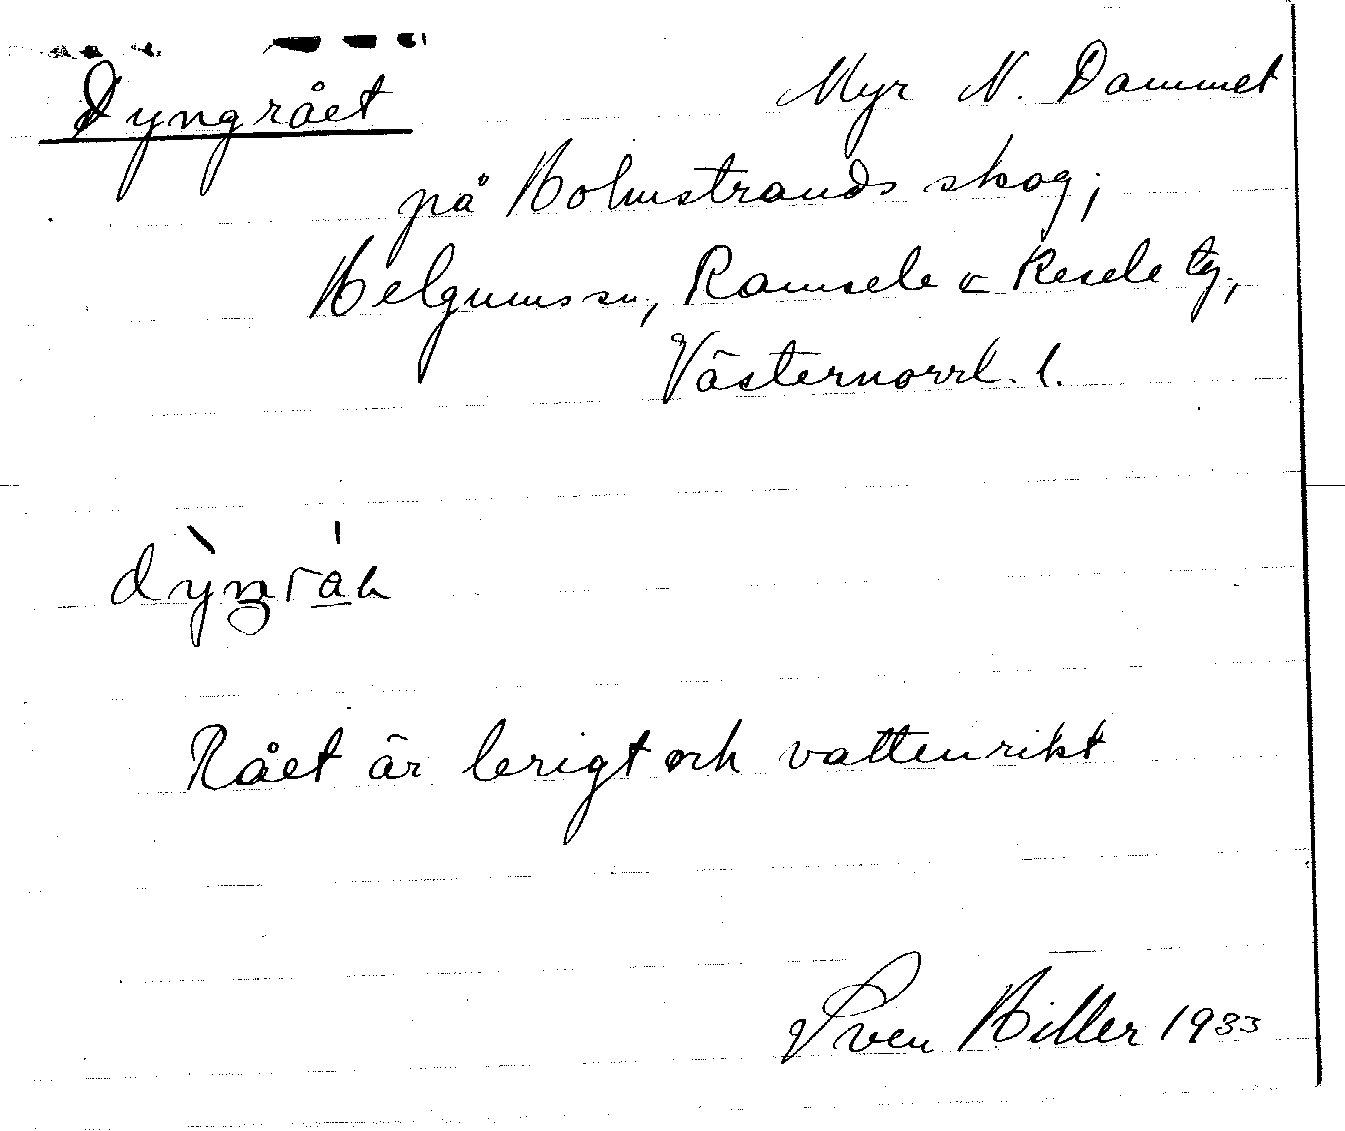 Dyngrået Myr N. Dammet
på Holmstrands skog,
Helgums sn, Ramsele o Resele tg,
Västernorrl. l.
Rået är lerigt och vattenrikt
Sven Hiller 1933